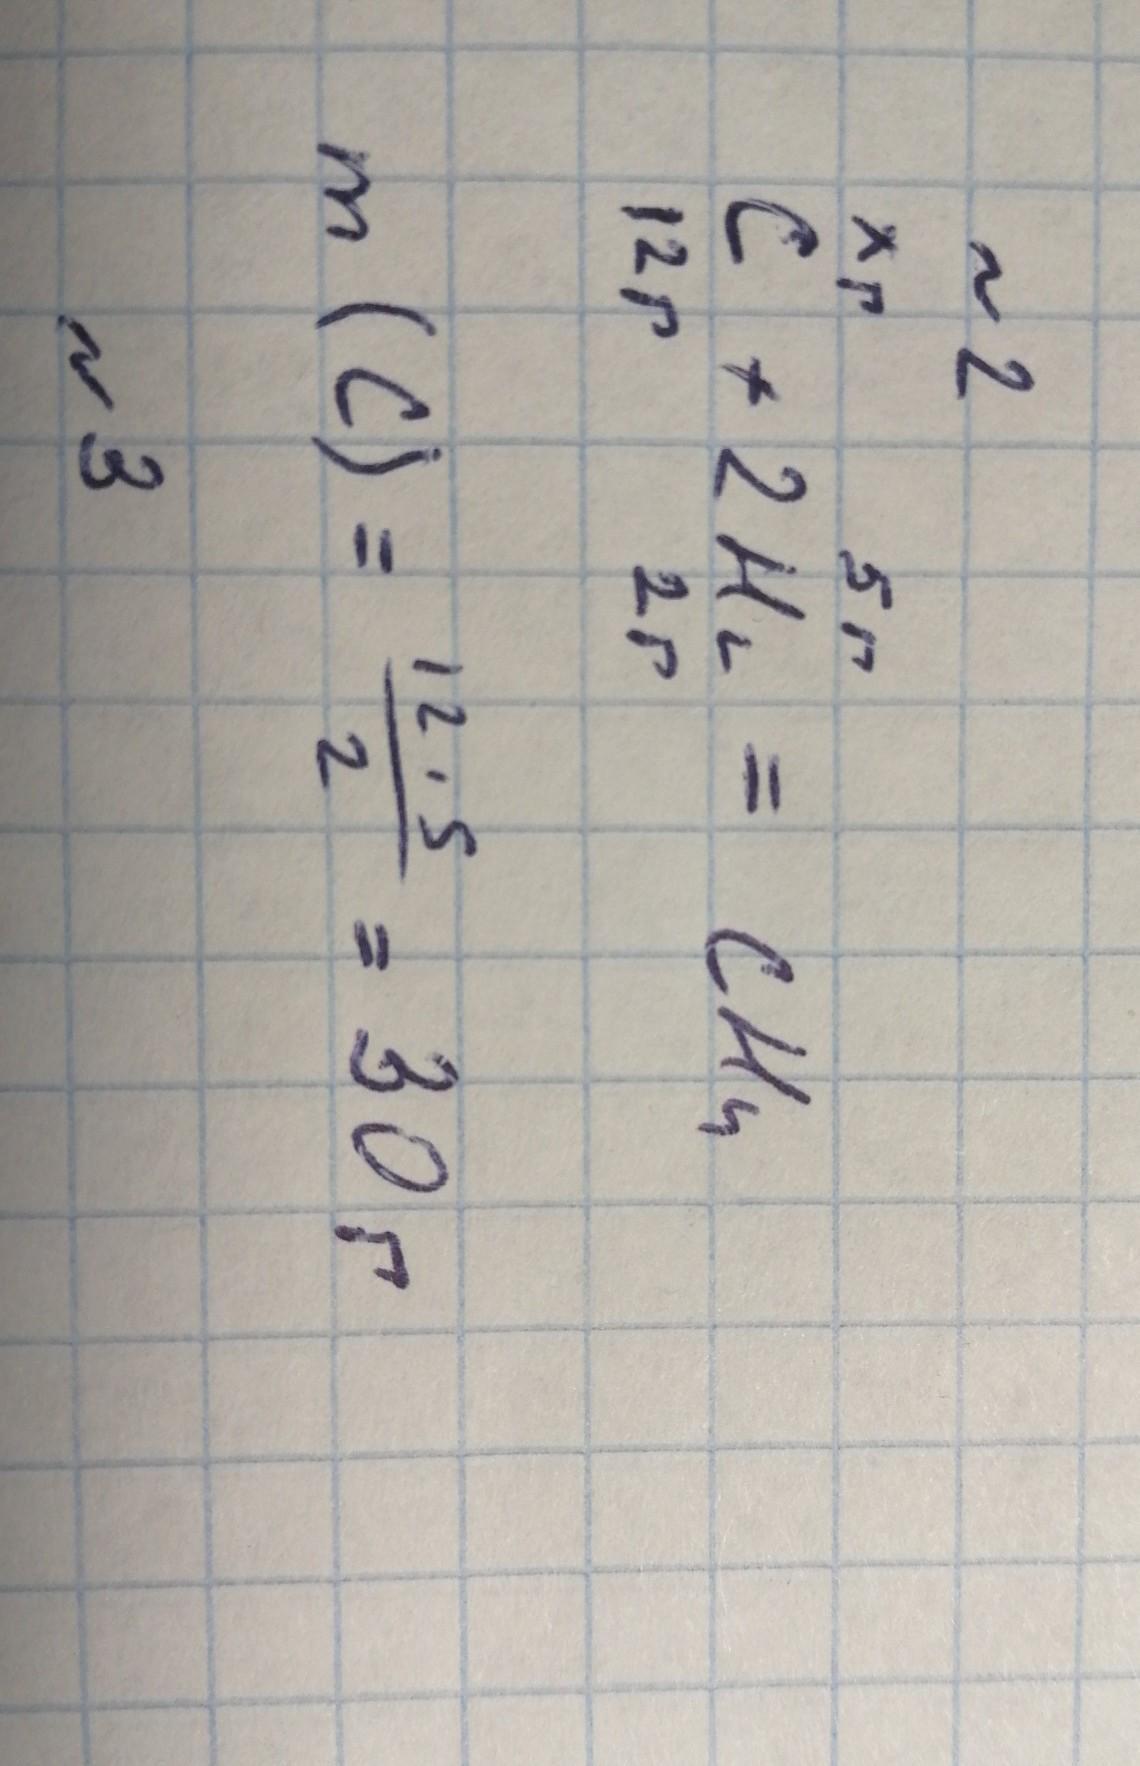 ~ 2
xг 5г
C + 2H₂ = CH₄
12г 2г
m (C) = 12·5/2 = 30г
~ 3